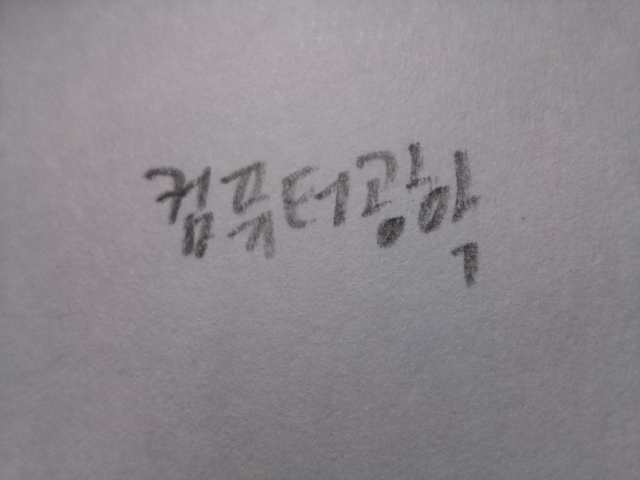 컴퓨터광학